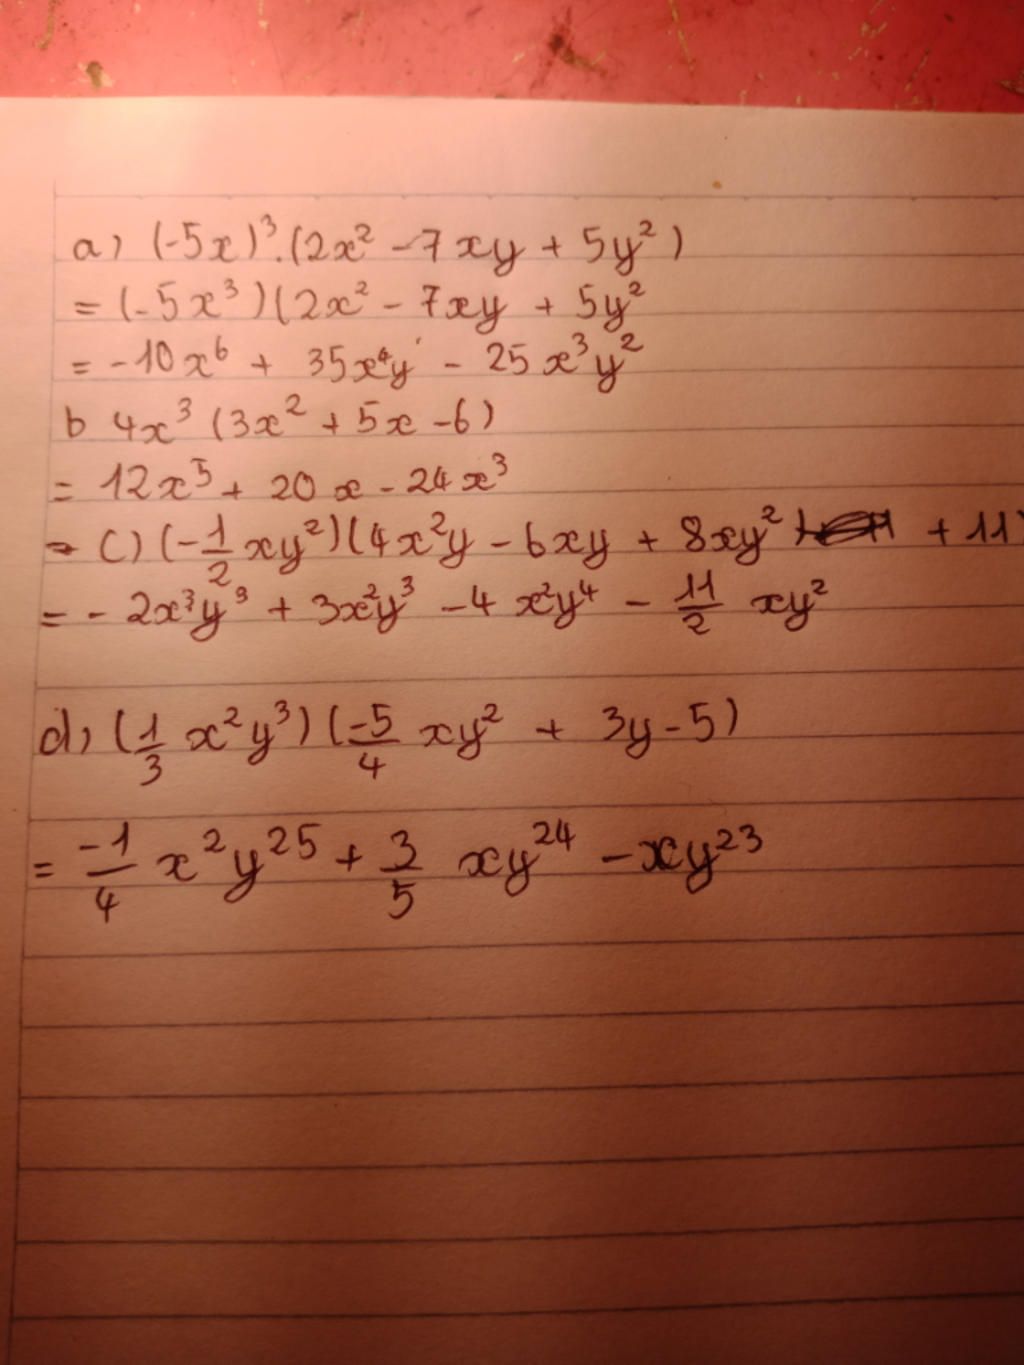 a) (-5x)³.(2x² - 7xy + 5y²)
= (-5x³)(2x² - 7xy + 5y²
= -10x⁶ + 35x⁴y - 25x³y²
b 4x³ (3x² + 5x - 6)
= 12x⁵ + 20x - 24x³
= c) (-1/2 xy²)(4x²y - 6xy + 8xy² + 11)
= - 2x³y³ + 3x²y³ - 4x²y⁴ - 11/2 xy²
d) (1/3 x²y³)(-5/4 xy² + 3y - 5)
= -1/4 x²y²⁵ + 3/5 xy²⁴ - xy²³